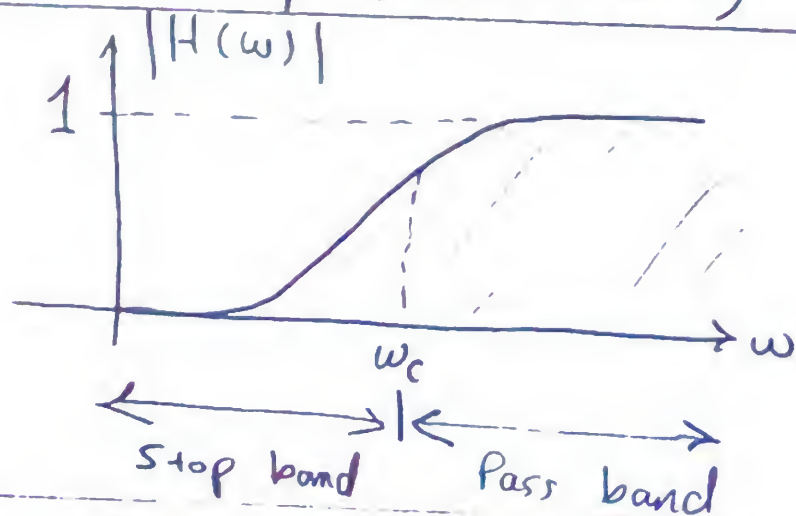 |H(ω)|
1
ω
ωc
Stop band Pass band